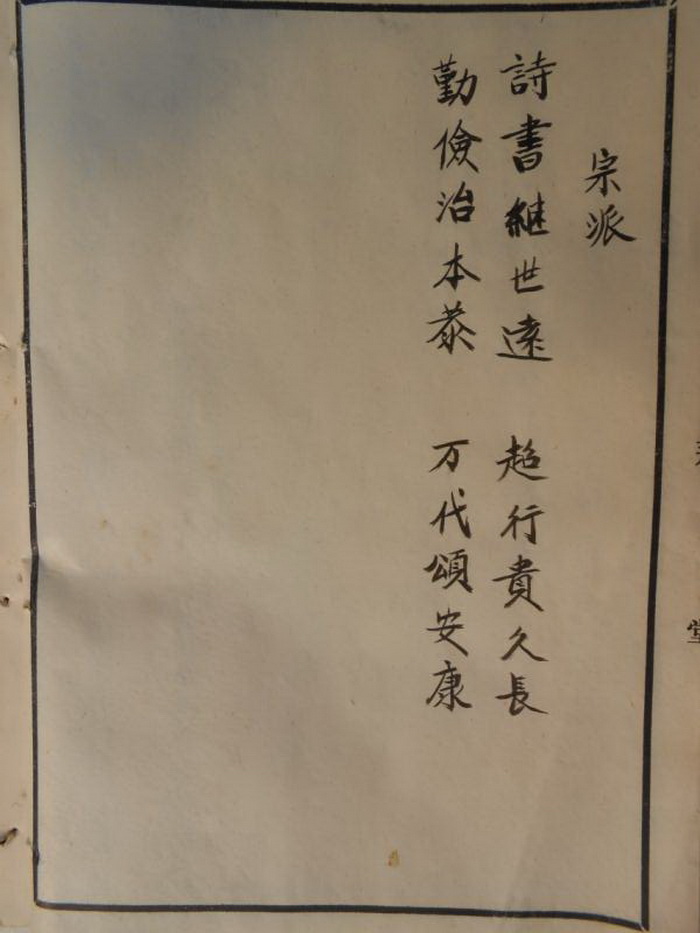 宗派
詩書継世遠 超行貴久長
勤儉治本泰 万代頌安康